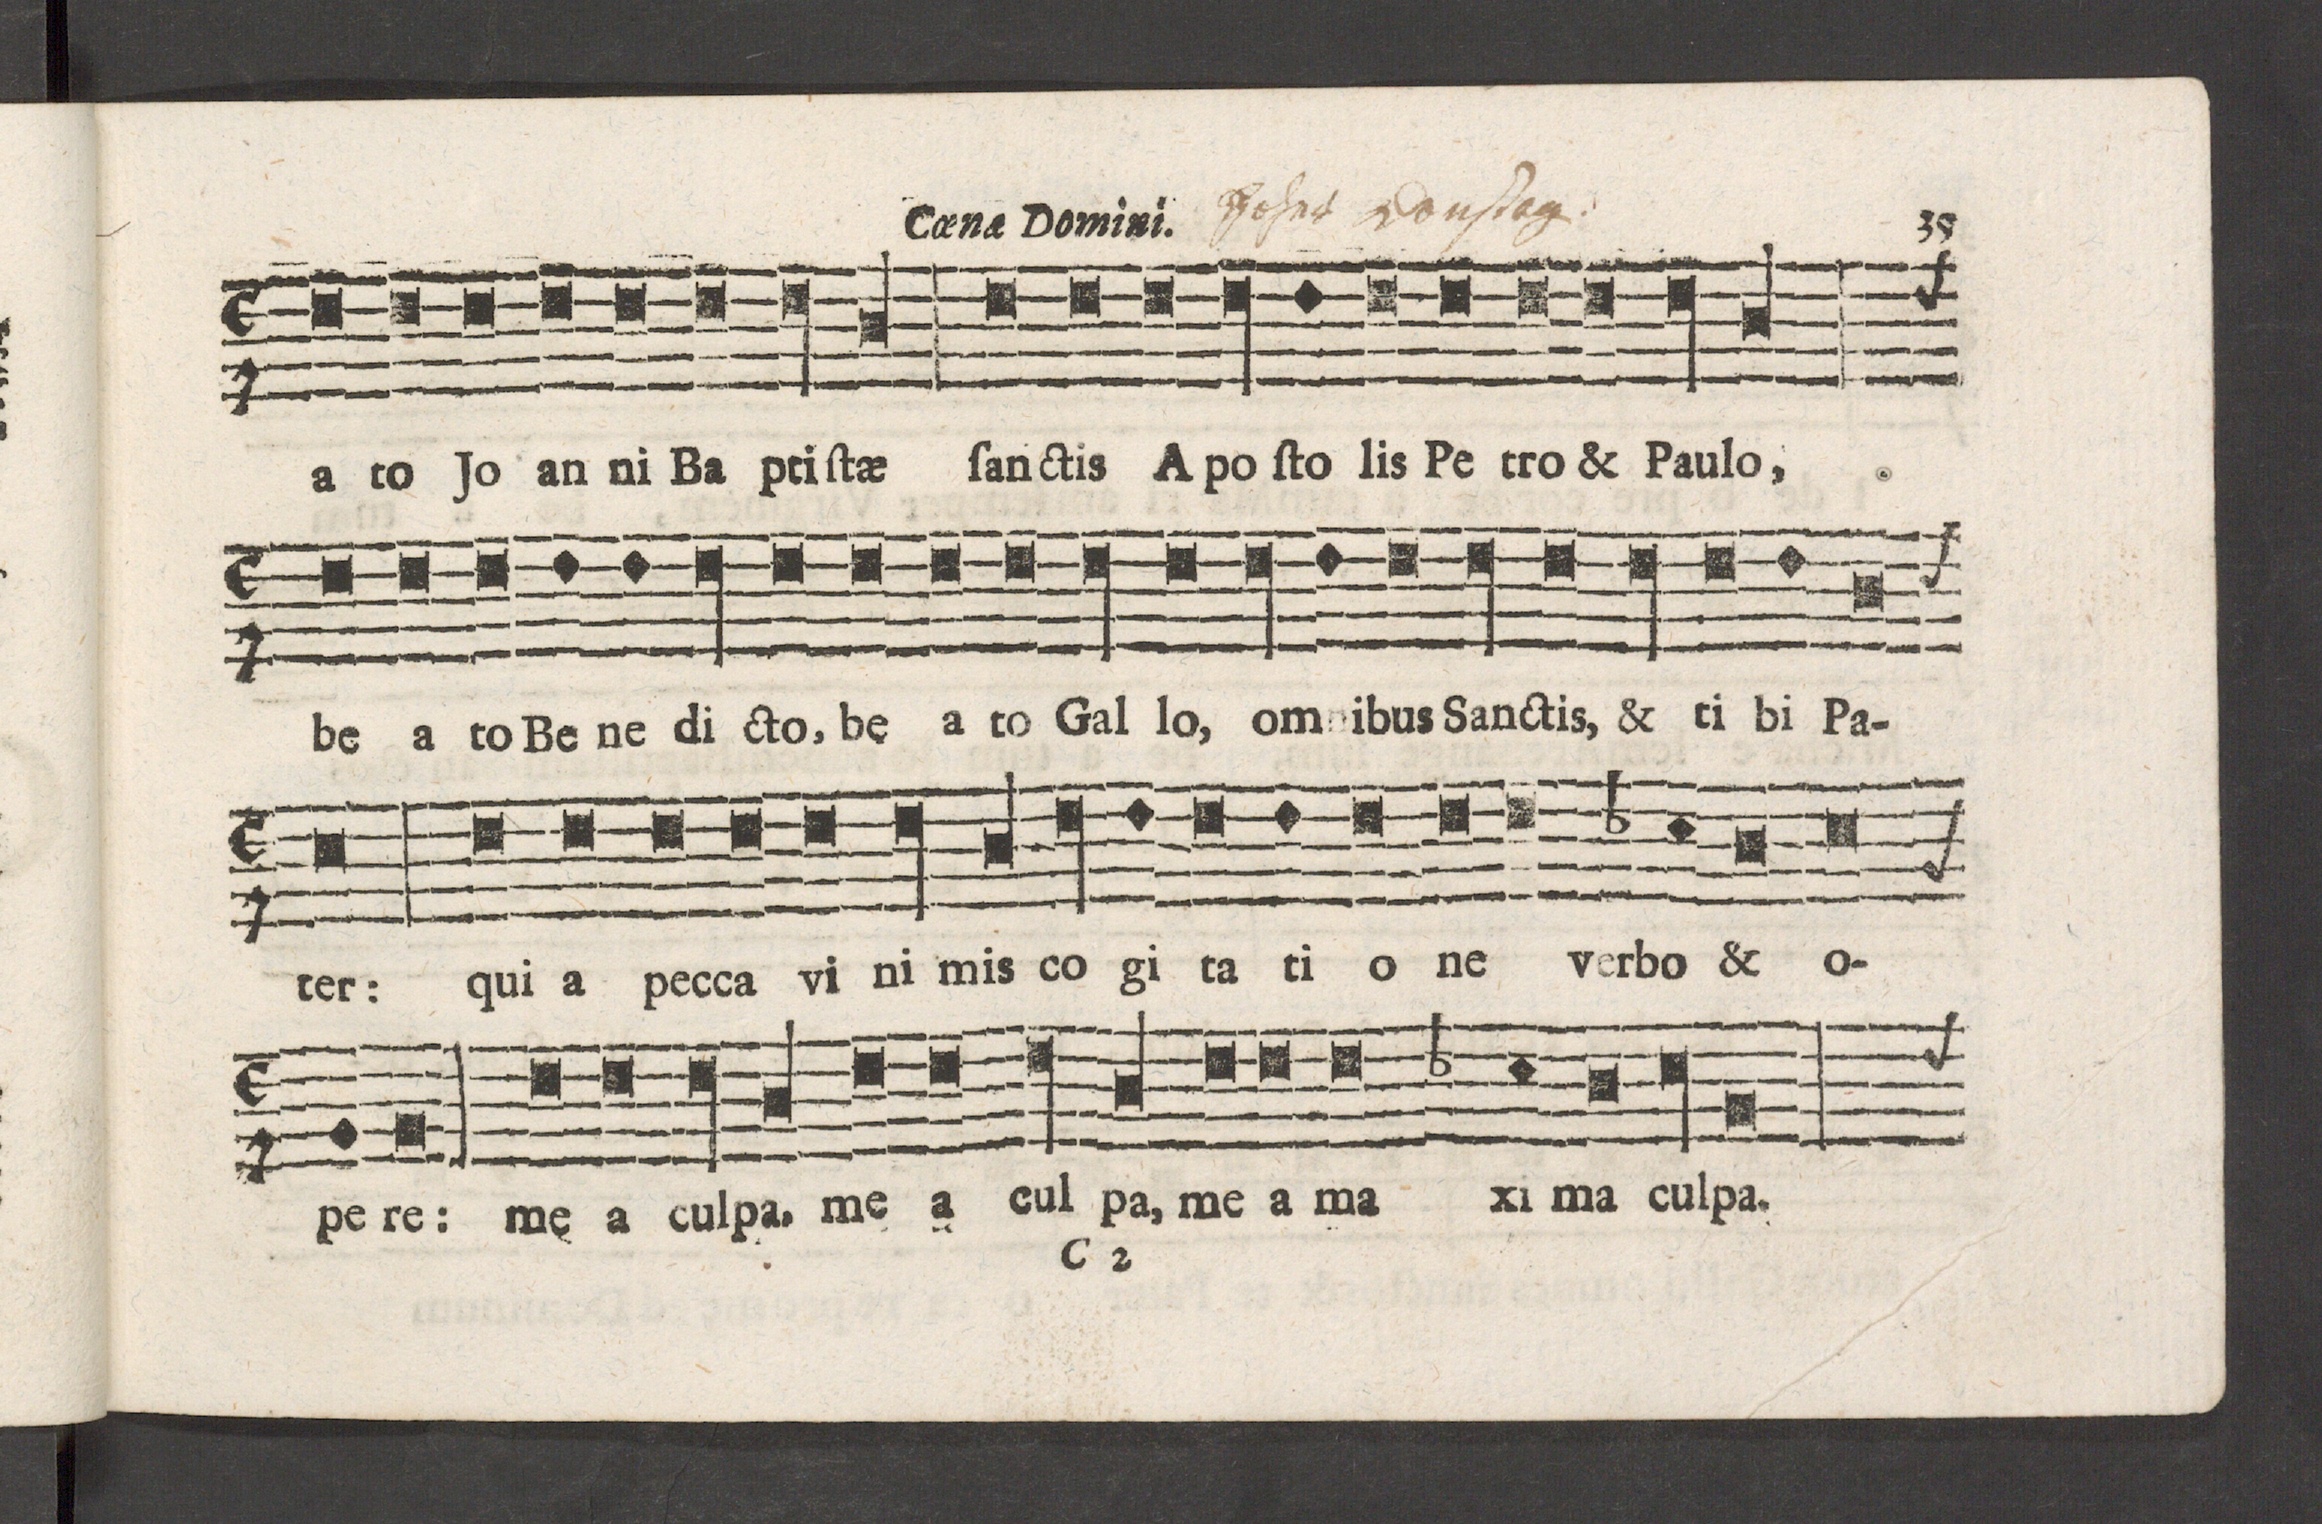 Cœnæ Domini. Hoher Donstag. 39
a to Jo an ni Ba pti ſtæ ſanctis A po ſto lis Pe tro & Paulo,
be a to Be ne di cto, bę a to Gal lo, omnibus Sanctis, & ti bi Pa-
ter: qui a pecca vi ni mis co gi ta ti o ne verbo & o-
pe re: mę a culpa. me a cul pa, me a ma xi ma culpa.
C 2